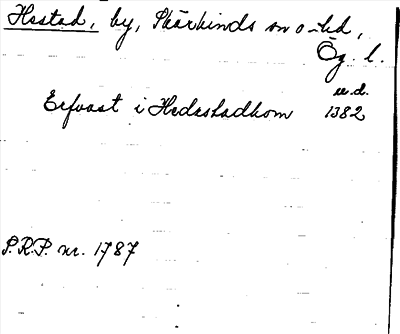 Hestad, by, Skärkinds sn o. hd,
Ög. l.
u.d.
Erfvast i Hedestadhom 1382
P.R.P. nr. 1787